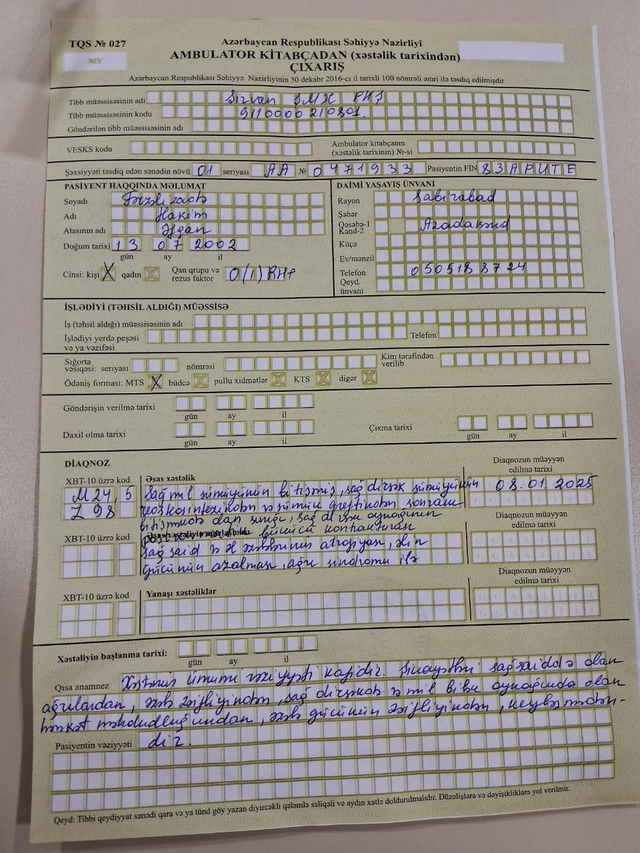 TQS № 027
Azərbaycan Respublikası Səhiyyə Nazirliyi
AMBULATOR KİTABÇADAN (xəstəlik tarixindən)
ÇIXARIŞ
Azərbaycan Respublikası Səhiyyə Nazirliyinin 30 dekabr 2016-cı il tarixli 100 nömrəli əmri ilə təsdiq edilmişdir
Tibb müəssisəsinin adı Şirvan ŞMX PHŞ
Tibb müəssisəsinin kodu 9110000210801
Göndərilən tibb müəssisəsinin adı
VESKS kodu
Ambulator kitabçanın
(xəstəlik tarixinin) №-si
Şəxsiyyəti təsdiq edən sənədin növü 01 seriyası AA № 0471933 Pasiyentin FIN 83APUTE
PASİYENT HAQQINDA MƏLUMAT
Soyadı
Adı Hakim
Atasının adı Əfqan
Doğum tarixi 13 07 2002
gün ay il
Cinsi: kişi X qadın
Qan qrupu və
rezus faktor O(I) RH+
DAİMİ YAŞAYIŞ ÜNVANI
Rayon Sabirabad
Şəhər
Qəsəbə-1
Kənd-2 Azadkənd
Küçə
Ev/mənzil
Telefon 0505188724
Qeyd.
ünvanı
İŞLƏDİYİ (TƏHSİL ALDIĞI) MÜƏSSİSƏ
İş (təhsil aldığı) müəssisəsinin adı
İşlədiyi yerdə peşəsi
və ya vəzifəsi
Telefon
Sığorta
vəsiqəsi: seriyası nömrəsi
Kim tərəfindən
verilib
Ödəniş forması: MTS X büdcə pullu xidmətlər KTS digər
Göndərişin verilmə tarixi
gün ay il
Daxil olma tarixi
gün ay il
Çıxma tarixi
gün ay il
DİAQNOZ
XBT-10 üzrə kod Əsas xəstəlik
Diaqnozun müəyyən
edilmə tarixi
M24,5 Sağ mil sümüyünün bitişmiş, sağ dirsək sümüyünün
08.01 2025
Z 98 sonrakı
sağ dirsək oynağının
XBT-10 üzrə kod
bükücü kontrakturası
Diaqnozun müəyyən
edilmə tarixi
sağ said və əl əzələlərinin atrofiyası, əlin
gücünün azalması, ağrı sindromu ilə
XBT-10 üzrə kod Yanaşı xəstəliklər
Diaqnozun müəyyən
edilmə tarixi
Xəstəliyin başlanma tarixi:
gün ay il
Qısa anamnez Xəstənin ümumi vəziyyəti kafidir. Şikayətləri: sağ saiddə olan
ağrılardan, əzələ zəifliyindən, sağ dirsək və mil bilək oynağında olan
hərəkət məhdudluğundan, əzələ gücünün zəifliyindən, keyləşmədən-
Pasiyentin vəziyyəti dir.
Qeyd: Tibbi qeydiyyat sənədi qara və ya tünd göy yazan diyircəkli qələmlə səliqəli və aydın xətlə doldurulmalıdır. Düzəlişlərə və dəyişikliklərə yol verilmir.